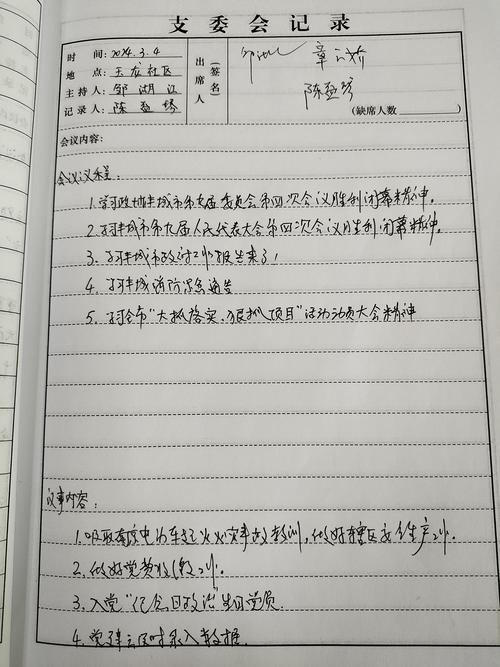 支委会记录
时间：2024.3.4
地点：玉龙社区
主持人：邹湖江
记录人：陈盈琴
出席人（签名）
章 陈盈琴
（缺席人数）
会议内容：
会议议程：
1.学习政协丰城市第九届委员会第四次会议胜利闭幕精神。
2.学习丰城市第九届人民代表大会第四次会议胜利闭幕精神。
3.学习丰城市政府工作报告来了！
4.学习丰城消防紧急通告
5.学习全市"大抓落实、狠抓项目"活动动员大会精神
议事内容：
1.吸取南京电动车起火火灾事故教训，做好辖区安全生产工作。
2.做好党费收缴工作。
3.入党" 政治"生日党员.
4.党建 及时录入数据.